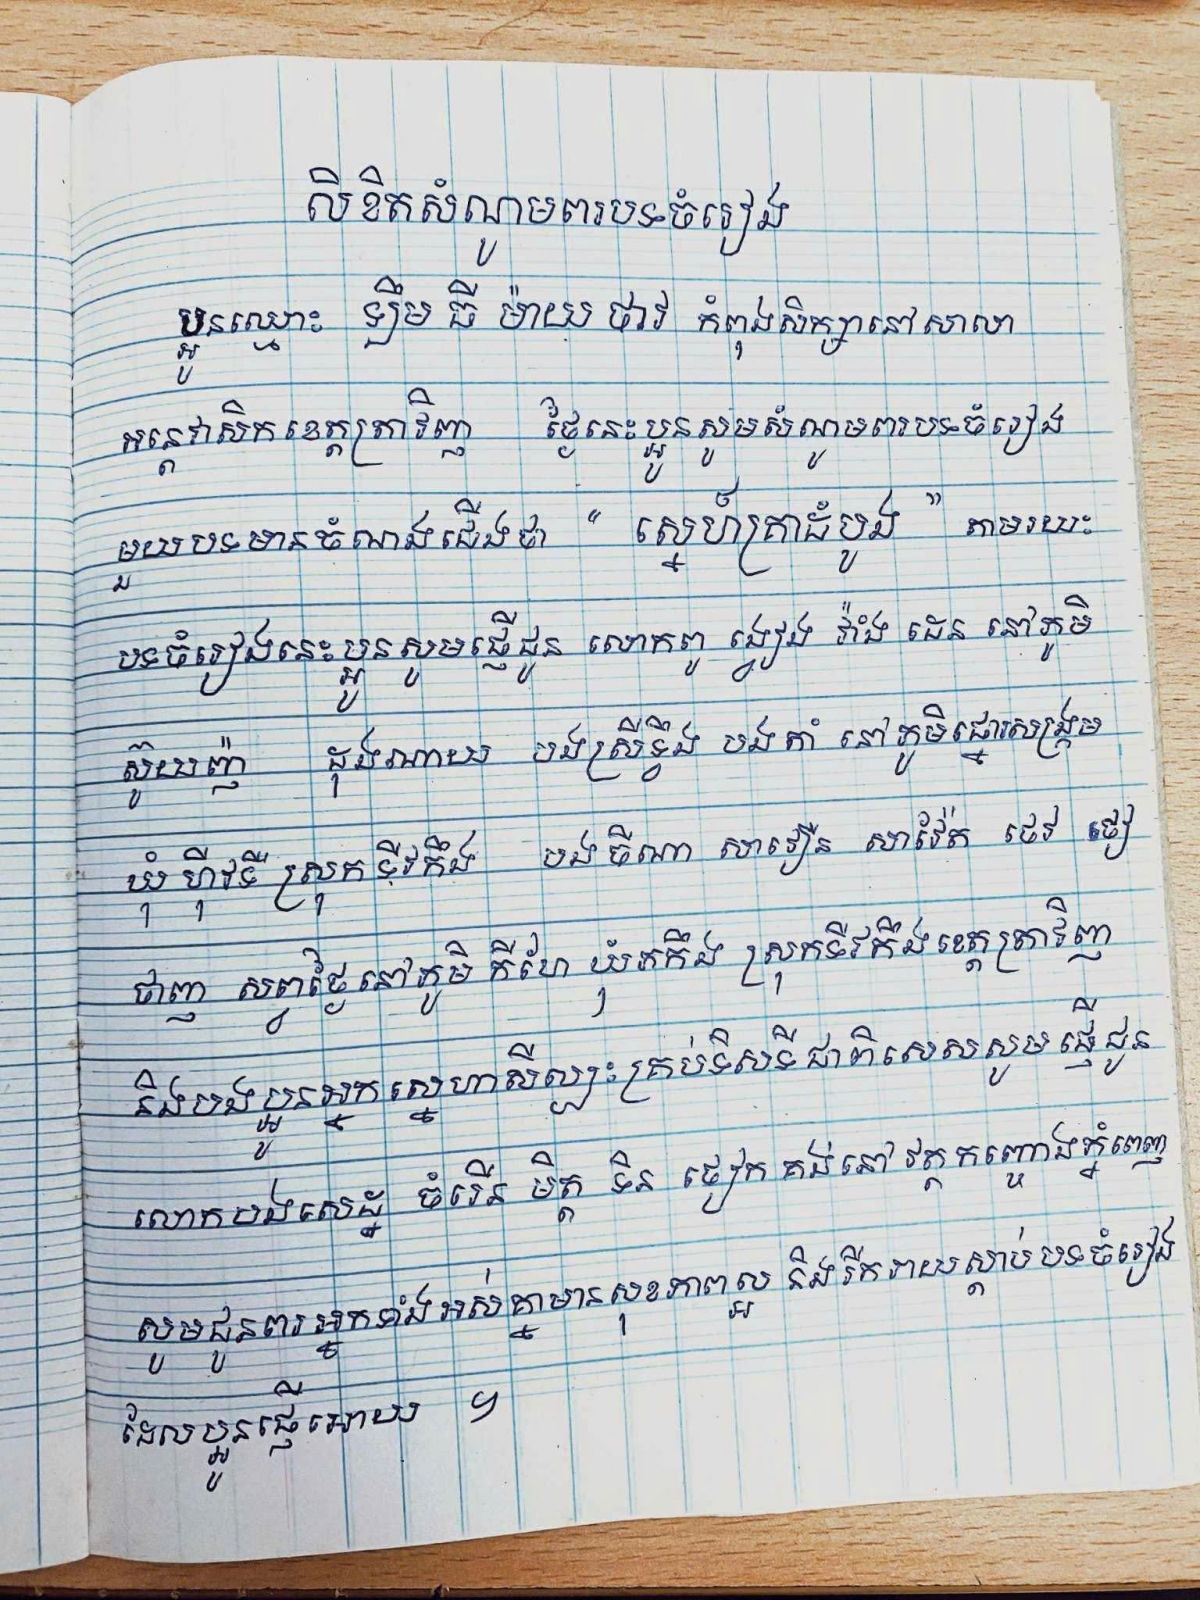 លិខិតសំណូមពរបទចំរៀង
ប្អូនឈ្មោះ ឡឹម ធី ម៉ាយ ថាវ កំពុងសិក្សានៅសាលា
អន្តេវាសិកខេត្តត្រាវិញ ថ្ងៃនេះប្អូនសូមសំណូមពរបទចំរៀង
មួយបទមានចំណងជើងថា " ស្នេហ៍គ្រាដំបូង " តាមរយៈ
បទចំរៀងនេះប្អូនសូមផ្ញើជូន លោកពូ ង្វៀង វ៉ាំង ដេន នៅភូមិ
ស៊ូយញ៉ា ដុងណាយ បងស្រីទ្វឹង បងតាំ នៅភូមិផ្នោរសង្គ្រម
ឃុំ ហ៊ីវទី ស្រុកទីវកឹង បងចីណា សាវឿន សាវ៉ែត ថេវ ថៀ
ថាញ សុវថ្ងៃនៅភូមិ កីហែ ឃុំភកឹង ស្រុកទីវកឹងខេត្តត្រាវិញ
និងបងប្អូនអ្នកស្នេហាសីល្បៈគ្រប់ទិសទីជាពិសេសសូមផ្ញើជូន
លោកបងសេដ្ឋ ចំរើន មិត្ត ទិន ថៀក គង់នៅវត្តកញ្ចោងភ្នំពេញ
សូមជូនពរអ្នកទាំងអស់គ្នាមានសុខភាពល្អ និងរីករាយស្តាប់បទចំរៀង
ដែលប្អូនផ្ញើអោយ ៗ